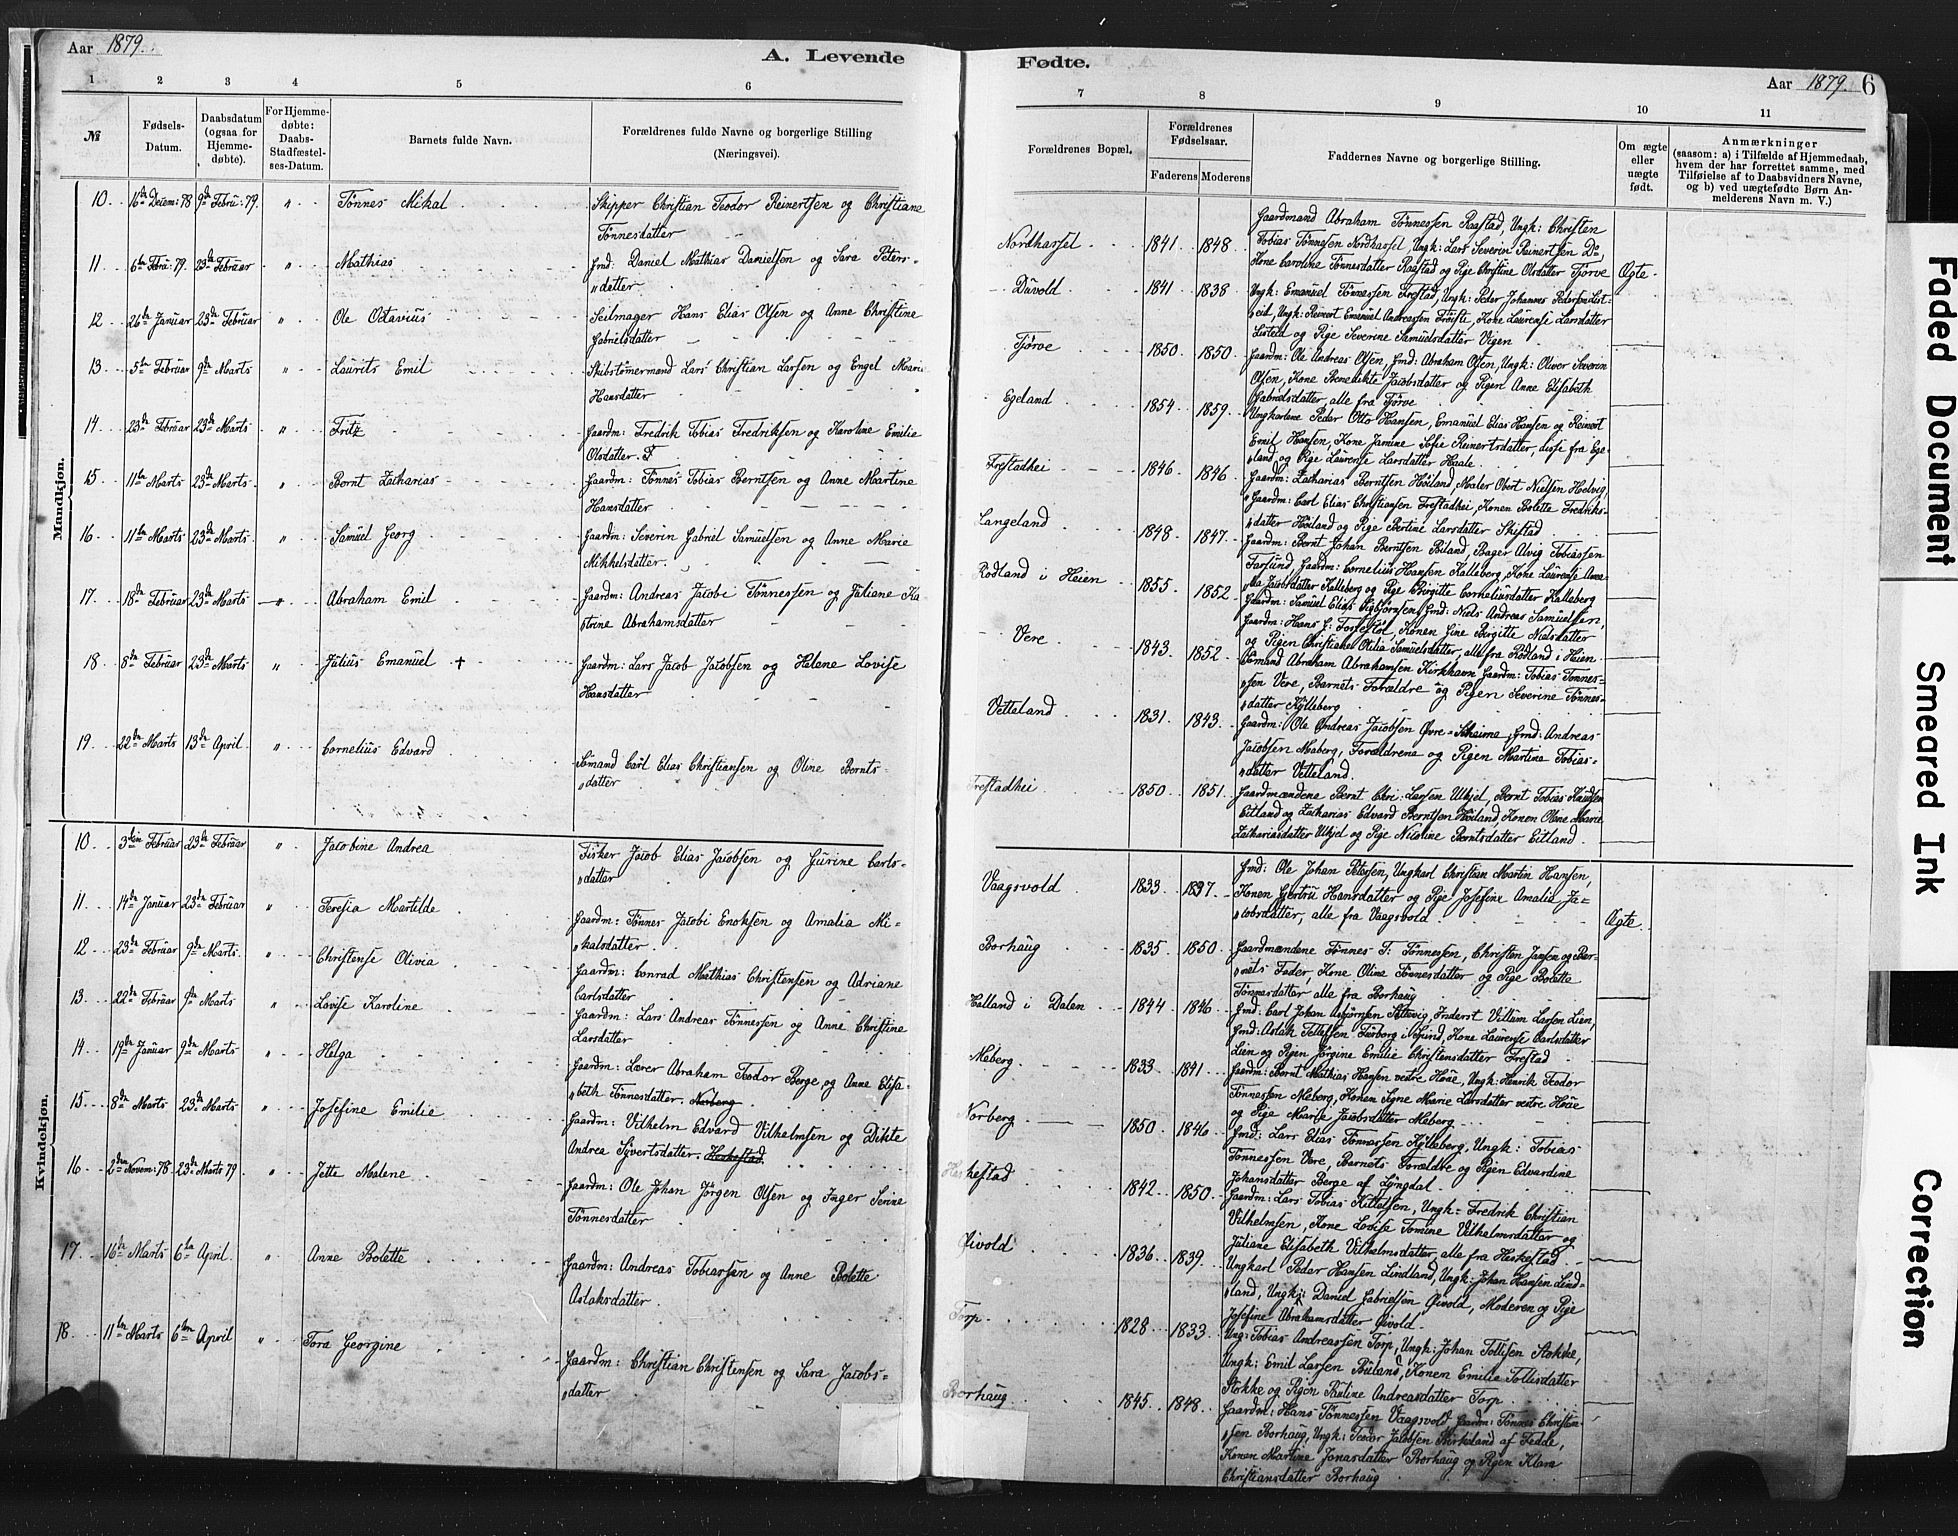 Aar 1879.
A. Levende
1 2 3 4 5 6
№
Fødsels-
Datum.
Daabsdatum
(ogsaa for
Hjemme-
døbte).
For Hjemme-
døbte:
Daabs-
Stadfæstel-
ses-Datum.
Barnets fulde Navn.
Forældrenes fulde Navne og borgerlige Stilling
(Næringsvei).
Mandkjøn.
10. 16de Decem: 78 9de Febru: 79. " Tønnes Mikal Skipper Christian Teodor Reinertsen og Christiane
Tønnesdatter
11 6te Febr: 79. 23de Februar " Mathias Gmd: Daniel Mathias Danielsen og Sara Peters-
"datter
12 26de Januar 23de Februar " Ole Octavius Seilmager Hans Elias Olsen og Anne Christine
Gabrielsdatter
13 5te Februar 9de Marts " Laurits Emil Skibstømermand Lars Christian Larsen og Engel Marie
Hansdatter
14 23de Februar 23de Marts " Fritz Gaardm: Fredrik Tobias Fredriksen og Karoline Emilie
Olsdatter. F
15 11te Marts 23de Marts " Bernt Zacharias Gaardm: Tønnes Tobias Berntsen og Anne Martine
Hansdatter
16 11te Marts 23de Marts " Samuel Georg Gaardm: Severin Gabriel Samuelsen og Anne Marie
Mikkelsdatter.
17. 18de Februar 23de Marts " Abraham Emil Gaardm: Andreas Jacobi Tønnessen og Juliane Ka
"trine Abrahamsdatter
18 8de Februar 23de Marts " Julius Emanuel + Gaardm: Lars Jacob Jacobsen og Helene Lovise
Hansdatter
19 22de Marts 13de April " Cornelius Edvard
Sømand Carl Elias Christiansen og Oline Bernts-
"datter
Kvindekjøn.
10 3die Februar 23de Februar " Jacobine Andrea Fisker Jacob Elias Jacobsen og Gurine Carls-
"datter
11 14de Januar 23de Februar " Teresia Martilde Gaardm: Tønnes Jacobi Enoksen og Amalia Mi-
"kalsdatter
12 23de Februar 9de Marts. " Christense Olivia Gaardm: Conrad Mathias Christensen og Adriane
Carlsdatter
13. 22de Februar 9de Marts " Lovise Karoline Gaardm: Lars Andreas Tønnessen og Anne Christine
Larsdatter
14 19de Januar 9de Marts " Helga Gaardm: Lærer Abraham Teodor Berge, og Anne Elisa-
"beth Tønnesdatter. Norberg
15 8de Marts 23de Marts " Josefine Emilie Gaardm: Vilhelm Edvard Vilhelmsen og Dikte
Andrea Syvertsdatter. Heskestad
16 2den Novem: 78 23de Marts 79 " Jette Malene Gaardm: Ole Johan Jørgen Olsen og Inger Serine
Tønnesdatter
17 16de Marts 6te April. " Anne Bolette Gaardm: Andreas Tobiassen og Anne Bolette
Aslaksdatter
18. 11te Marts 6te April " Tora Georgine
Gaardm: Christian Christensen og Sara Jacobs-
"datter
Fødte.
Aar 1879. 6
7 8 9 10 11
Forældrenes Bopæl.
Forældrenes
Fødselsaar.
Faderens Moderens
Faddernes Navne og borgerlige Stilling.
Om ægte
eller
uægte
født.
Anmærkninger
(saasom: a) i Tilfælde af Hjemmedaab,
hvem der har forrettet samme, med
Tilføielse af to Daabsvidners Navne,
og b) ved uægtefødte Børn An-
melderens Navn m. V.)
Gaardmand Abraham Tønnessen Raastad, Ungk: Christen
Nordhassel 1841 1848 Tobias Tønnesen Nordhassel Ungk: Lars Severin Reinertsen Do
Kone Caroline Tønnesdatter Raastad og Pige Christine Olsdatter Tjørve Ægte
Duvold 1841 1838 Ungk: Emanuel Tønnessen Frestad, Ungk: Peder Johannes Pedersen List-
"eid, Ungk: Reinert Emanuel Andreassen Froiste, Kone Laurense Larsdatter
Listeid og Pige Severine Samuelsdatter Vigen
Tjørve 1850 1850 Gaardm: Ole Andreas Olsen, Gmd: Abraham Olsen, Ungk: Oliver Severin
Olsen, Kone Benedikte Jacobsdatter og Pigen Anne Elisabeth
Gabrielsdatter, alle fra Tjørve
Egeland 1854 1859 Ungkarlene Peder Otto Hansen, Emanuel Elias Hansen og Reinert
Emil Hansen, Kone Jamine Sofie Reinertsdatter, disse fra Ege-
"land og Pige Laurense Larsdatter Haale
Frestadhei 1846 1846 Gaardm: Zacharias Berntsen Høiland, Maler Obert Nielsen Helvig,
"Gaardm: Carl Elias Christiansen Frestadhei, Konen Bolette Fredriks-
"datter Høiland og Pige Bertine Larsdatter Skifstad
Langeland 1848 1847 Gaardm: Bernt Johan Berntsen Biland, Bager Alvig Tobiassen
Farsund, Gaardm: Cornelius Hansen Kalleberg, Kone Laurense Anna-
"Ma Jacobsdatter Kalleberg og Pige Birgitte Corneliusdatter Kalleberg
Rødland i Heien 1855 1852 Gaardm: Samuel Elias Sigbjørnsen, Gmd: Niels Andreas Samuelsen,
Gaardm: Hans G: Forsestøl, Konen Gine Birgitte Nielsdatter
og Pigen Christiane Otilia Samuelsdatter, alle fra Rødland i Heien
Vere 1843 1852 Sømand Abraham Abrahamsen Kirkhavn Gaardm: Tobias Tønnes-
"sen Vere, Barnets Forældre og Pigen Severine Tønnes-
"datter Kylleberg
Vetteland 1831 1843 Gaardm: Ole Andreas Jacobsen Øvre-Skeime, Gmd: Andreas
Jacobsen Maberg, Forældrene og Pigen Martine Tobias-
"datter Vetteland.
Frestadhei 1850 1851 Gaardmændene Bernt Chri: Larsen Ulkjel, Bernt Tobias Knudsen
Eitland og Zacharias Edvard Berntsen Høiland, Konen Olene Marie
Zachariasdatter Ulkjel og Pige Nicoline Berntsdatter Eitland
Vaagsvold 1833 1837 Gmd: Ole Johan Petersen, Ungkarl Christian Martin Hansen,
Konen Gjertru Hansdatter og Pige Josefine Amalie Ja-
"cobsdatter, alle fra Vaagsvold Ægte
Borhaug 1835 1850 Gaardmændene Tønnes T: Tønnessen, Christen Jansen og Bar-
"nets Fader, Kone Olina Tønnesdatter og Pige Bolette
Tønnesdatter, alle fra Borhaug
Halland i Dalen 1844 1846 Gmd: Carl Johan Asbjørnsen Sellevig, Inderst Villum Larsen Lien,
Gmd: Aslak Tellefsen Tørborg i Søgund, Kone Laurense Carlsdatter
Lien og Pigen Jørgine Emilie Christensdatter Frestad
Meberg 1833 1841 Gaardm: Bernt Mathias Hansen vestre Høae, Ungk: Henrik Teodor
Tønnessen Meberg, Konen Signe Marie Larsdatter vestre Høae
og Pige Marie Jacobsdatter Meberg
Norberg 1850 1846 Gmd: Lars Elias Tønnessen Kylleberg, Ungk: Tobias
Tønnessen Vere, Barnets Forældre og Pigen Edvardine
Johansdatter Berge af Lyngdal
Heskestad 1842 1850 Gaardm: Lars Tobias Kittelsen, Ungk: Fredrik Christian
Vilhelmsen, Kone Lovise Tomine Vilhelmsdatter og
Juliane Elisabeth Vilhelmsdatter, alle fra Heskestad
Øivold 1836 1839 Ungkarl Peder Hansen Lindland, Ungk: Johan Hansen Lind-
"land, Ungk: Daniel Gabrielsen Øivold, Moderen og Pige
Josefine Abrahamsdatter Øivold
Torp 1828 1833 Ung: Tobias Andreassen Torp, Ungk: Johan Tollisen Stokke,
Ungk: Emil Larsen Buland, Konen Emilie Tollisdatter
Stokke og Pigen Pauline Andreasdatter Torp
Borhaug 1845 1848 Gaardm: Hans Tønnessen Vaagsvold Gaardm: Tønnes Christen-
"sen Borhaug, Ungk: Teodor Jacobsen Birkeland af Fedde,
Konen Martine Jonasdatter Borhaug og Pigen Klara
Christiansdatter Borhaug
Faded Document
Smeared Ink
Correction